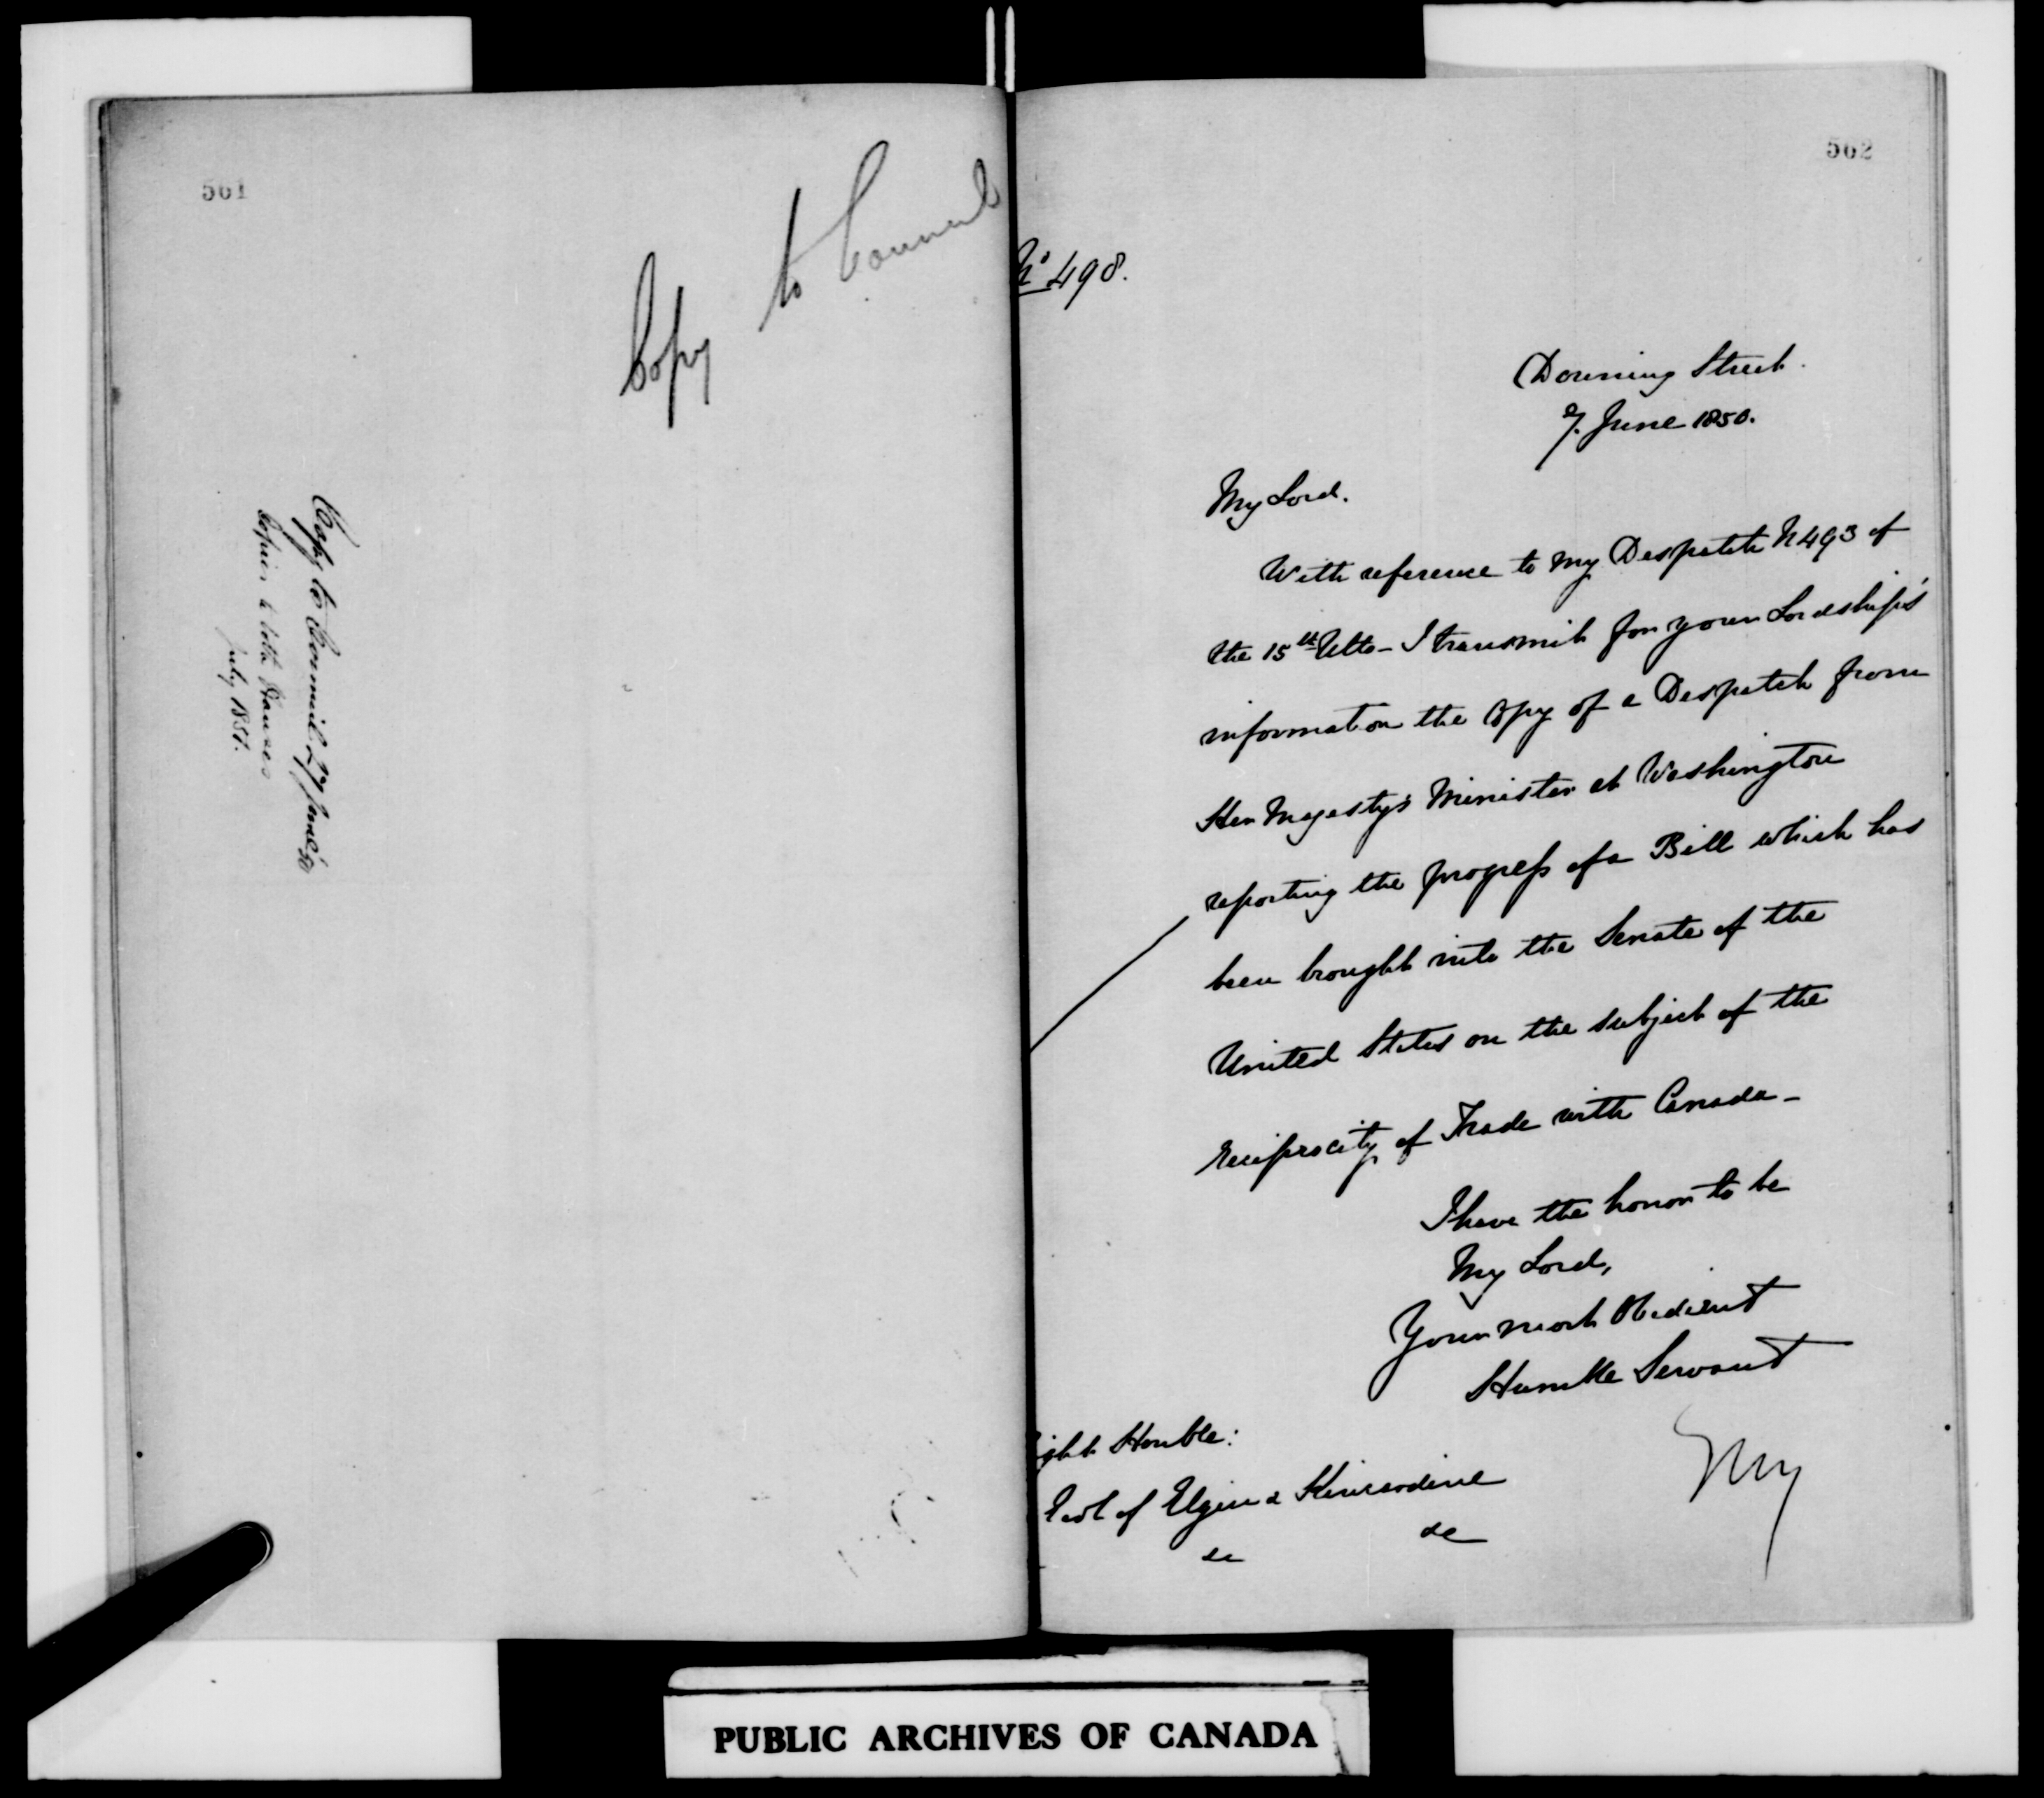 561
Copy to Council
Copy to Council 27 June '50
Copies to both Houses
July 1851.
562
No 498.
Downing Street.
7. June 1850.
My Lord.
With reference to my Despatch N 493 of
the 15th Ulto - I transmit for your Lordship's
information the copy of a Despatch from
Her Majesty's Minister at Washington
reporting the progress of a Bill which has
been brought into the Senate of the
United States on the subject of the
reciprocity of Trade with Canada -
I have the honor to be
My Lord,
Your most Obedient
Humble Servant
ight Honble:
Earl of Elgin & Kincardine
&c
&c
PUBLIC ARCHIVES OF CANADA